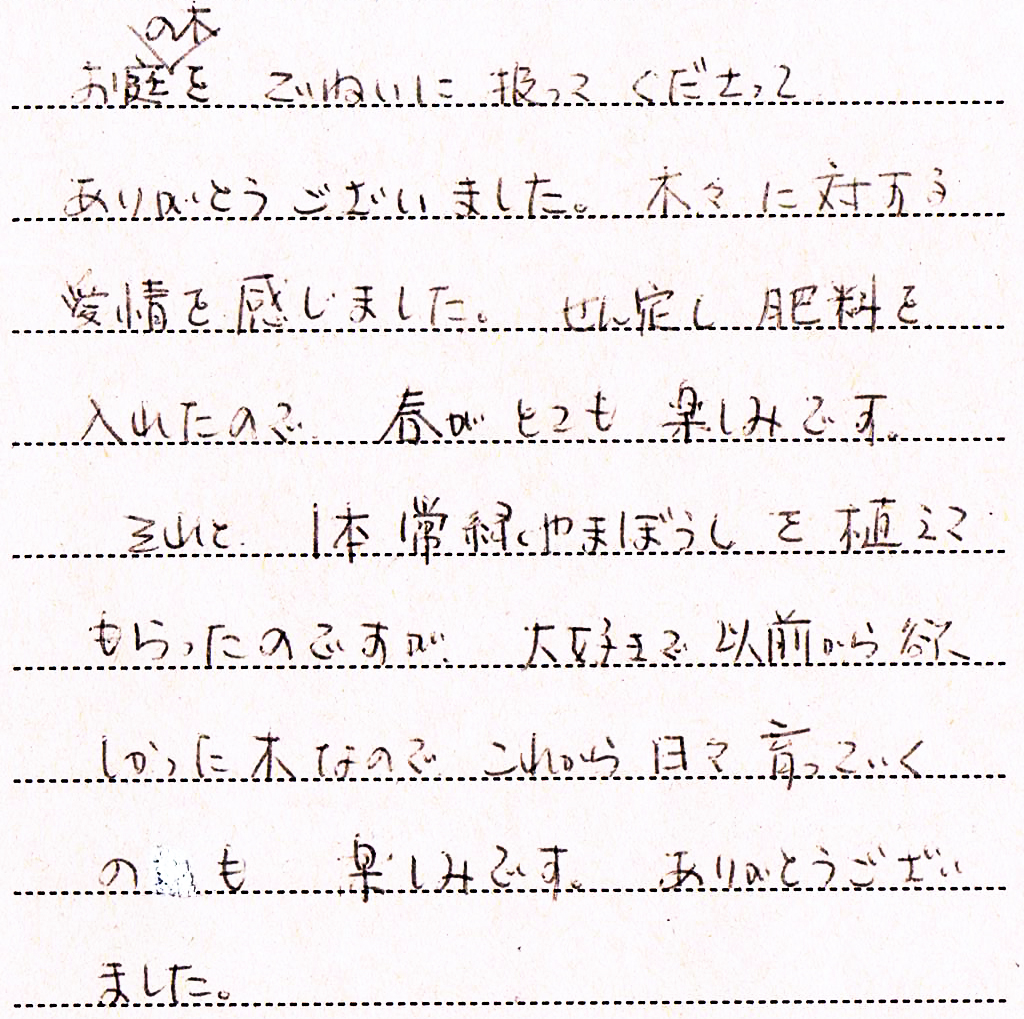 お庭の木を ていねいに 扱って くださって
ありがとう ございました。 木々に対する
愛情を感じました。 せん定し 肥料を
入れたので 春が とても 楽しみです。
それと 1本 常緑やまぼうし を植えて
もらったのですが 大好きで 以前から欲
しかった木なので これから 日々 育っていく
の も 楽しみです。 ありがとうござい
ました。